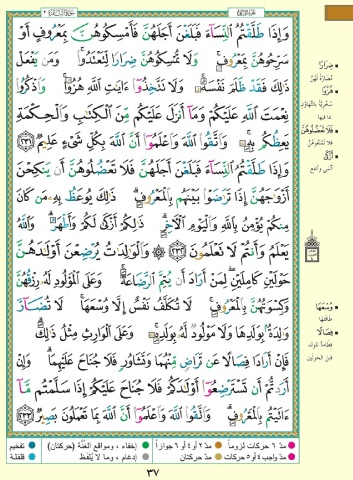 وَإِذَا طَلَّقْتُمُ النِّسَاءَ فَبَلَغْنَ أَجَلَهُنَّ فَأَمْسِكُوهُنَّ بِمَعْرُوفٍ أَوْ
سَرِّحُوهُنَّ بِمَعْرُوفٍ وَلَا تُمْسِكُوهُنَّ ضِرَارًا لِتَعْتَدُوا وَمَن يَفْعَلْ
ذَلِكَ فَقَدْ ظَلَمَ نَفْسَهُ وَلَا تَتَّخِذُوا آيَاتِ اللَّهِ هُزُوًا وَاذْكُرُوا
نِعْمَتَ اللَّهِ عَلَيْكُمْ وَمَا أَنزَلَ عَلَيْكُم مِّنَ الْكِتَابِ وَالْحِكْمَةِ
يَعِظُكُم بِهِ وَاتَّقُوا اللَّهَ وَاعْلَمُوا أَنَّ اللَّهَ بِكُلِّ شَيْءٍ عَلِيمٌ ٢٣١
وَإِذَا طَلَّقْتُمُ النِّسَاءَ فَبَلَغْنَ أَجَلَهُنَّ فَلَا تَعْضُلُوهُنَّ أَن يَنكِحْنَ
أَزْوَاجَهُنَّ إِذَا تَرَاضَوْا بَيْنَهُم بِالْمَعْرُوفِ ذَلِكَ يُوعَظُ بِهِ مَن كَانَ
مِنكُمْ يُؤْمِنُ بِاللَّهِ وَالْيَوْمِ الْآخِرِ ذَلِكُمْ أَزْكَى لَكُمْ وَأَطْهَرُ وَاللَّهُ
يَعْلَمُ وَأَنتُمْ لَا تَعْلَمُونَ ٢٣٢ ۞ وَالْوَالِدَاتُ يُرْضِعْنَ أَوْلَادَهُنَّ
حَوْلَيْنِ كَامِلَيْنِ لِمَنْ أَرَادَ أَن يُتِمَّ الرَّضَاعَةَ وَعَلَى الْمَوْلُودِ لَهُ رِزْقُهُنَّ
وَكِسْوَتُهُنَّ بِالْمَعْرُوفِ لَا تُكَلَّفُ نَفْسٌ إِلَّا وُسْعَهَا لَا تُضَارَّ
وَالِدَةٌ بِوَلَدِهَا وَلَا مَوْلُودٌ لَّهُ بِوَلَدِهِ وَعَلَى الْوَارِثِ مِثْلُ ذَلِكَ
فَإِنْ أَرَادَا فِصَالًا عَن تَرَاضٍ مِّنْهُمَا وَتَشَاوُرٍ فَلَا جُنَاحَ عَلَيْهِمَا وَإِنْ
أَرَدتُّمْ أَن تَسْتَرْضِعُوا أَوْلَادَكُمْ فَلَا جُنَاحَ عَلَيْكُمْ إِذَا سَلَّمْتُم مَّا
آتَيْتُم بِالْمَعْرُوفِ وَاتَّقُوا اللَّهَ وَاعْلَمُوا أَنَّ اللَّهَ بِمَا تَعْمَلُونَ بَصِيرٌ ٢٣٣
ضِرَارًا
مُضَارَّةً لَهُنَّ
هُزُوًا
فَلَا تَعْضُلُوهُنَّ
فلا تمنعوهن
أَزْكَى
أنمى وأنفع
وُسْعَهَا
طاقتها
فِصَالًا
فطاماً للولد
قبل الحولين
مدّ ٦ حركات لزوماً
مدّ ٢ أو ٤ أو ٦ جوازاً
إخفاء، ومواقع الغنّة (حركتان)
تفخيم
مدّ واجب ٤ أو ٥ حركات
مدّ حركتان
إدغام، وما لا يُلفظ
قلقلة
٣٧